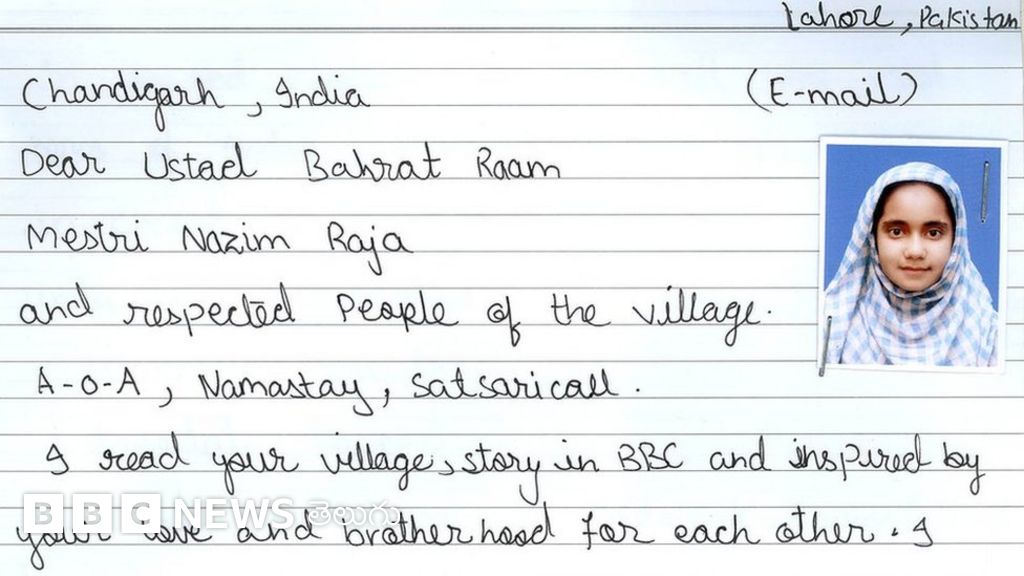 Lahore, Pakistan
Chandigarh, India (E-mail)
Dear Ustad Bahrat Raam
Mestri Nazim Raja
and respected People of the village.
A-O-A, Namastay, Satsaricall.
I read your village, story in BBC and inspired by
your love and brotherhood for each other. I
BBC NEWS తెలుగు